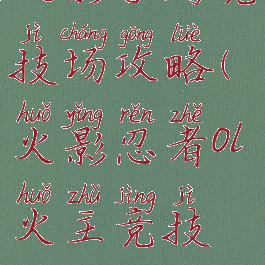 jì chǎng gōng lüè
技场攻略(
huǒ yǐng rěn zhě
火影忍者Ol
huǒ zhǔ jìng jì
火主竞技